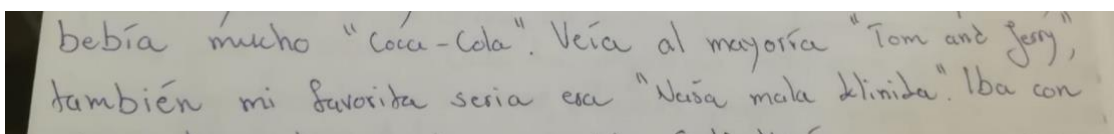 bebía mucho "Coca-Cola". Veía al mayoría "Tom and Jerry",
también mi favorita seria era "Naša mala klinika". Iba con